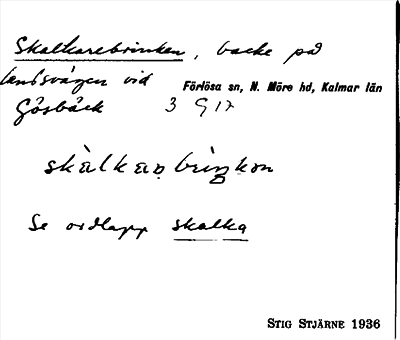 Skalkarebrinken, backe på
landsvägen vid Förlösa sn, N. Möre hd, Kalmar län
Gåsbäck 3 G 17
skàlkaṛbrìŋkən
Se ordlapp skalka
STIG STJÄRNE 1936